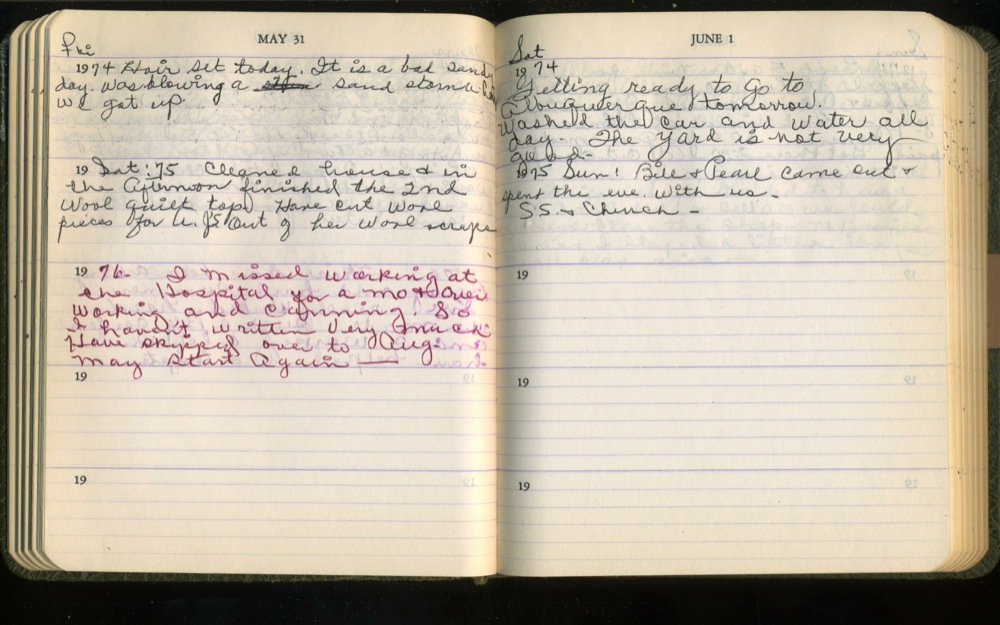 MAY 31
Fri
1974 Hair set today. It is a bad sandy
day. Was blowing a sand storm when
we got up.
19 Sat: 75 Cleaned house & in
the Afternoon finished the 2nd
Wool quilt top. Have cut Wool
pieces for out of her Wool scraps
19 76- I missed working at
the Hospital for a mo
working and canning. So
I haven't written Very Much
Have skipped over to Aug.
may start Again —
19
19
JUNE 1
Sat
1974
Getting ready to go to
Albuquerque tomorrow.
Washed the car and water all
day. The yard is not very
good-
1975 Sun! Bill & Pearl came out &
spent the eve. with us.
S.S. & Church -
19
19
19